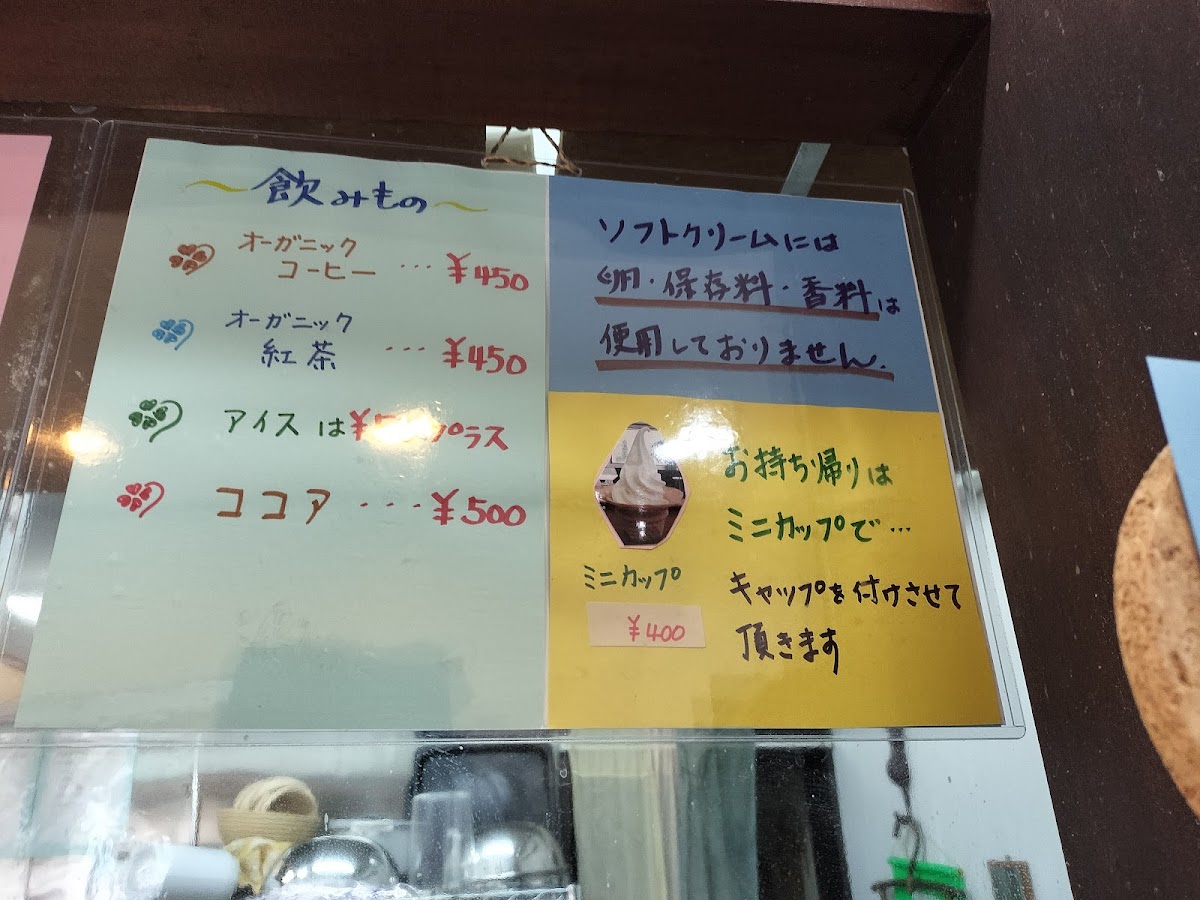 〜飲みもの〜
オーガニック
コーヒー … ¥450
オーガニック
紅茶 … ¥450
アイスは¥ プラス
ココア ・・・¥500
ソフトクリームには
卵・保存料・香料は
使用しておりません.
お持ち帰りは
ミニカップで…
キャップを付けさせて
頂きます
ミニカップ
¥400